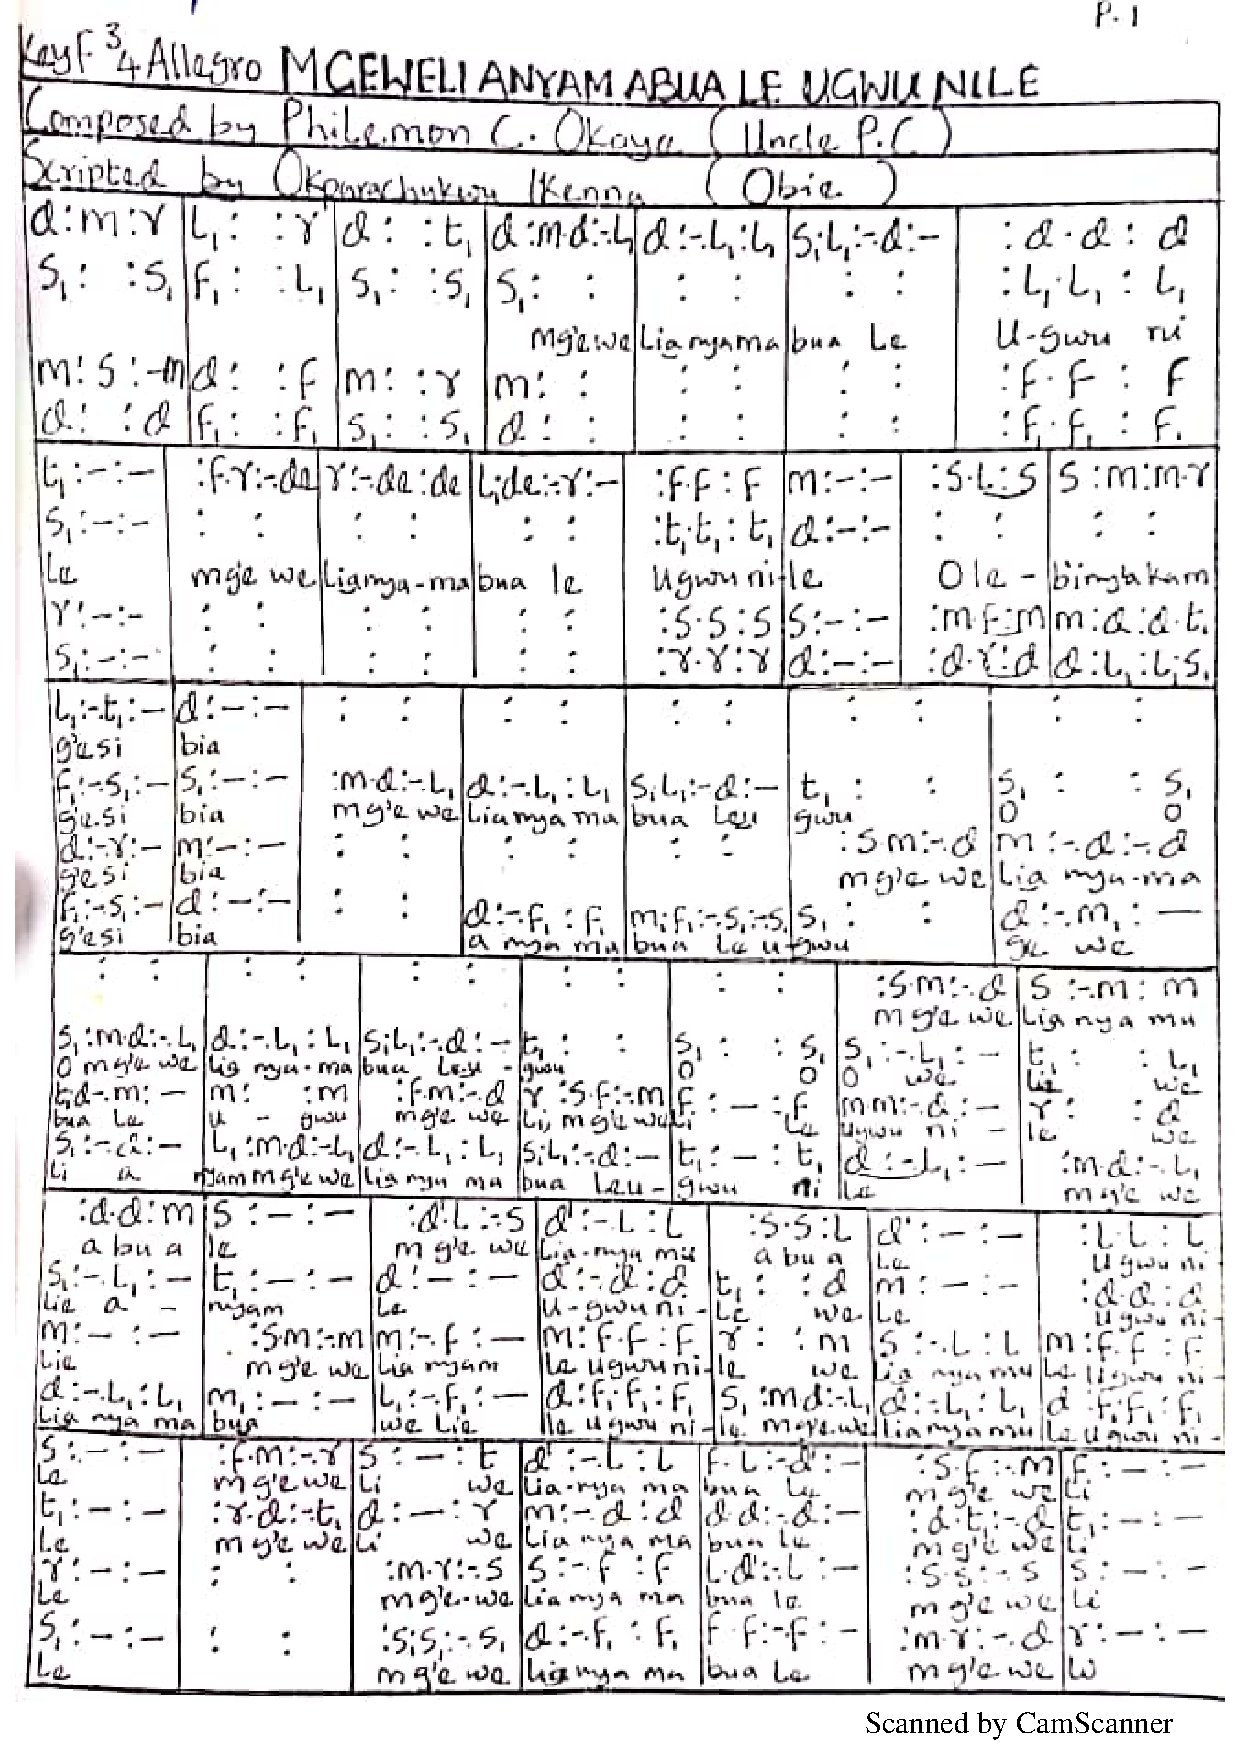 P. 1
Key F 3/4 Allegro MGEWELI ANYAM ABUA LE UGWU NILE
Composed by Philemon C. Okoye (Uncle P.C)
Scripted by Okparachukwu Ikenna (Obie)
d:m:r | L₁: :r | d: :t₁ | d:m.d:-.L₁ | d:-.L₁:L₁ | S₁.L₁:-.d:- | :d.d:d
S₁: :S₁ | F₁: :L₁ | S₁: :S₁ | S₁: : | : : | : : | :L₁.L₁:L₁
mg'e we | Lia nya ma | bua Le | U-gwu ni
m:S:-.m | d: :F | m: :r | m: : | : : | : : | :F.F:F
d: :d | F₁: :F₁ | S₁: :S₁ | d: : | : : | : : | :F₁.F₁:F₁
t₁:-:- | :F.r:-.de | r:-.de:de | L₁.de:-.r:- | :F.F:F | m:-:- | :S.L:S | S:m:m.r
S₁:-:- | : : | : : | : : | :t₁.t₁:t₁ | d:-:- | : : | : :
Le | mg'e we | Lia nya-ma | bua le | Ugwu ni-le | O le - | 
r:-:- | : : | : : | : : | :S.S:S | S:-:- | :m.F:m | m:d:d.t₁
S₁:-:- | : : | : : | : : | :r.r:r | d:-:- | :d.r:d | d:L₁:L₁.S₁
L₁:-.t₁:- | d:-:- | : : | : : | : : | : : | : :
g'esi | bia
F₁:-.S₁:- | S₁:-:- | :m.d:-.L₁ | d:-.L₁:L₁ | S₁.L₁:-.d:- | t₁: : | S₁: :S₁
g'esi | bia | mg'e we | Lia nya ma | bua Leu | gwu | O O
d:-.r:- | m:-:- | : : | : : | : : | :S.m:-.d | m:-.d:-.d
g'esi | bia | mg'e we | Lia nya-ma
F₁:-.S₁:- | d:-:- | : : | d:-.F₁:F₁ | m₁.F₁:-.S₁:-.S₁ | S₁: : | d:-.m₁:-
g'esi | bia | a nya ma | bua Le u-gwu | ge we
: : | : : | : : | : : | : : | :S.m:-.d | S:-.m:m
mg'e we | Lia nya ma
S₁:m.d:-.L₁ | d:-.L₁:L₁ | S₁.L₁:-.d:- | t₁: : | S₁: :S₁ | S₁:-.L₁:- | t₁: :L₁
O mg'e we | Lia nya-ma | bua Le.u - | gwu | O O | O we | Lie we
t₁.d:-.m:- | m: :m | :F.m:-.d | r:S.F:-.m | F:-:F | m.m:-.d:- | r: :d
bua Le | u - gwu | mg'e we | Li, mg'e we | Li Le | Ugwu ni - | le we
S₁:-.d:- | L₁:m.d:-.L₁ | d:-.L₁:L₁ | S₁.L₁:-.d:- | t₁:-:t₁ | d:-.L₁:- | :m.d:-.L₁
Li a | nyam mg'e we | Lia nya ma | bua Leu - | gwu ni | Le | mg'e we
:d.d:m | S:-:- | :d'.L:-.S | d':-.L:L | :S.S:L | d':-:- | :L.L:L
a bu a | le | mg'e we | Lia-nya ma | a bu a | Le | Ugwu ni -
S₁:-.L₁:- | t₁:-:- | d:-:- | d:-.d:d | t₁: :d | m:-:- | :d.d:d
Lie a - | nyam | Le | U-gwu ni - | Le we | Le | Ugwu ni-
m:-:- | :S.m:-.m | m:-.F:- | m:F.F:F | r: :m | S:-.L:L | m:F.F:F
Lie | mg'e we | Lia nyam | le Ugwu ni- | le we | Lia nya ma | Le Ugwu ni -
d:-.L₁:L₁ | m₁:-:- | L₁:-.F₁:- | d:F₁.F₁:F₁ | S₁:m.d:-.L₁ | d:-.L₁:L₁ | d:F₁.F₁:F₁
Lia nya ma | bua | we Lie | le Ugwu ni - | le mg'e we | lia nya ma | Le Ugwu ni -
S:-:- | :F.m:-.r | S:-:t | d':-.L:L | F.L:-.d':- | :S.F:-.m | F:-:-
Le | mg'e we | Li we | Lia-nya ma | bua Le | mg'e we | Li
t₁:-:- | :r.d:-.t₁ | d:-:r | m:-.d:d | d.d:-.d:- | :d.t₁:-.d | t₁:-:-
Le | mg'e we | Li we | Lia nya ma | bua le | mg'e we | Li
r:-:- | : : | :m.r:-.S | S:-.F:F | L.d':-.L:- | :S.S:-.S | S:-:-
Le | mg'e-we | Lia nya ma | bua le | mg'e we | Li
S₁:-:- | : : | :S₁.S₁:-.S₁ | d:-.F₁:F₁ | F.F:-.F:- | :m.r:-.d | r:-:-
Le | mg'e we | lia nya ma | bua Le | mg'e we
Scanned by CamScanner